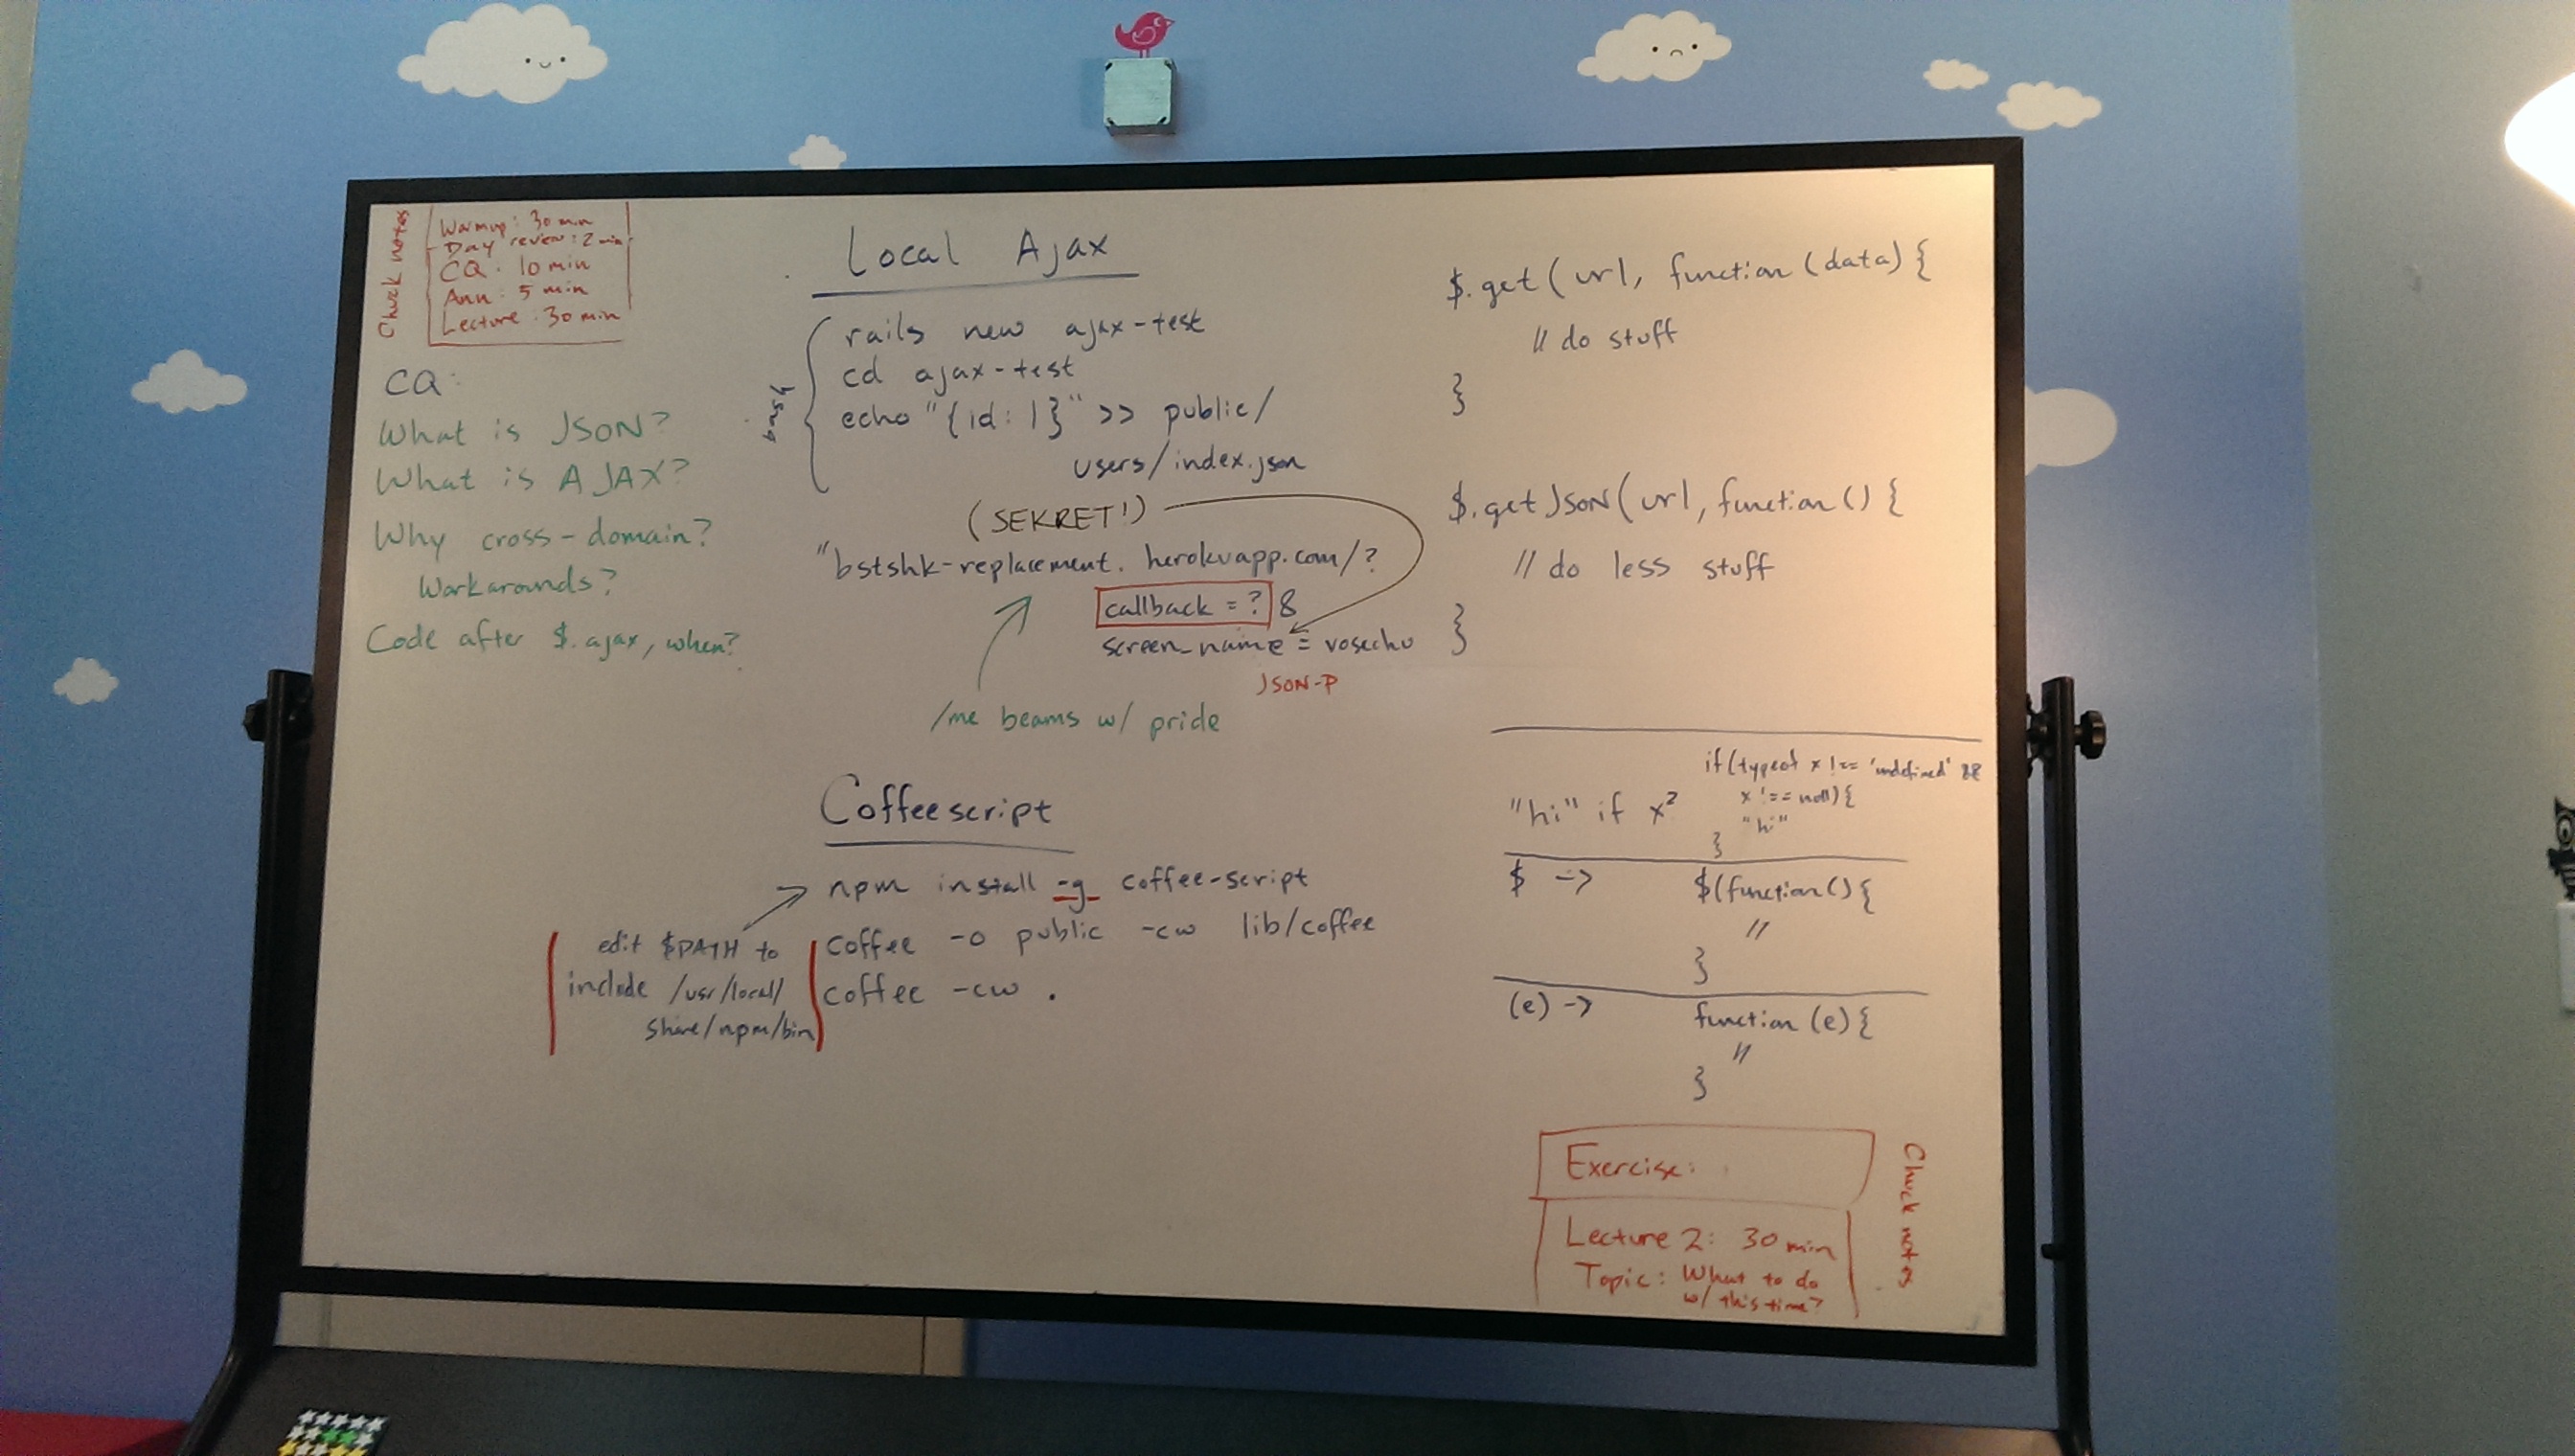 Chuck notes
Warmup: 30 min
Day review: 2 min
CQ: 10 min
Ann: 5 min
Lecture: 30 min
CQ:
What is JSON?
What is AJAX?
Why cross-domain?
Workarounds?
Code after $.ajax, when?
Local Ajax
bash
rails new ajax-test
cd ajax-test
echo "{id: 1}" >> public/
users/index.json
(SEKRET!)
"bstshk-replacement.herokuapp.com/?
callback = ? &
screen_name = vosecho
JSON-P
/me beams w/ pride
Coffeescript
npm install -g coffee-script
coffee -o public -cw lib/coffee
coffee -cw .
edit $PATH to
include /usr/local/
share/npm/bin
$.get(url, function(data){
// do stuff
}
$.getJSON(url, function(){
// do less stuff
}
"hi" if x?
if(typeof x !== 'undefined' &&
x !== null){
"hi"
}
$ ->
$(function(){
//
}
(e) ->
function(e){
//
}
Exercise:
Lecture 2: 30 min
Topic: What to do
w/ this time?
Chuck notes